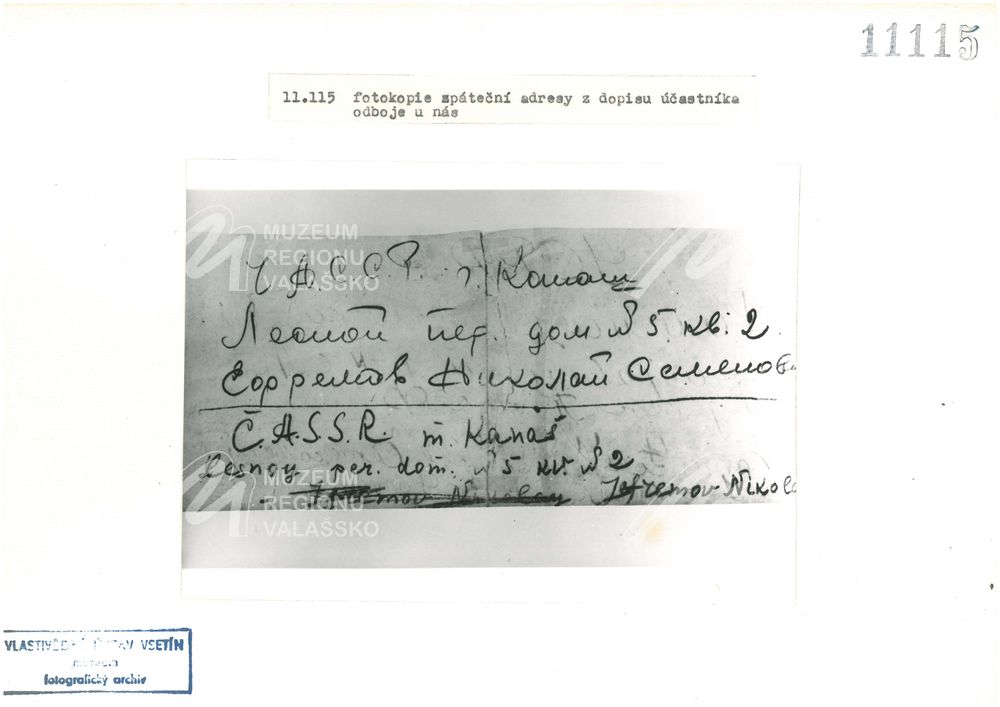 11115
11.115 fotokopie zpáteční adresy z dopisu účastníka
odboje u nás
MUZEUM
REGIONU
VALAŠSKO
Ч А.С.С.Р. г. Канаш
Лесной пер. дом № 5 кв. 2
Ефремов Николай Семенов
Č.A.S.S.R. m. Kanaš
Lesnoy per. dom. № 5 kv. № 2
Jefremov Nikola
MUZEUM
REGIONU
VALAŠSKO
VLASTIVĚDNÝ ÚSTAV VSETÍN
fotografický archiv